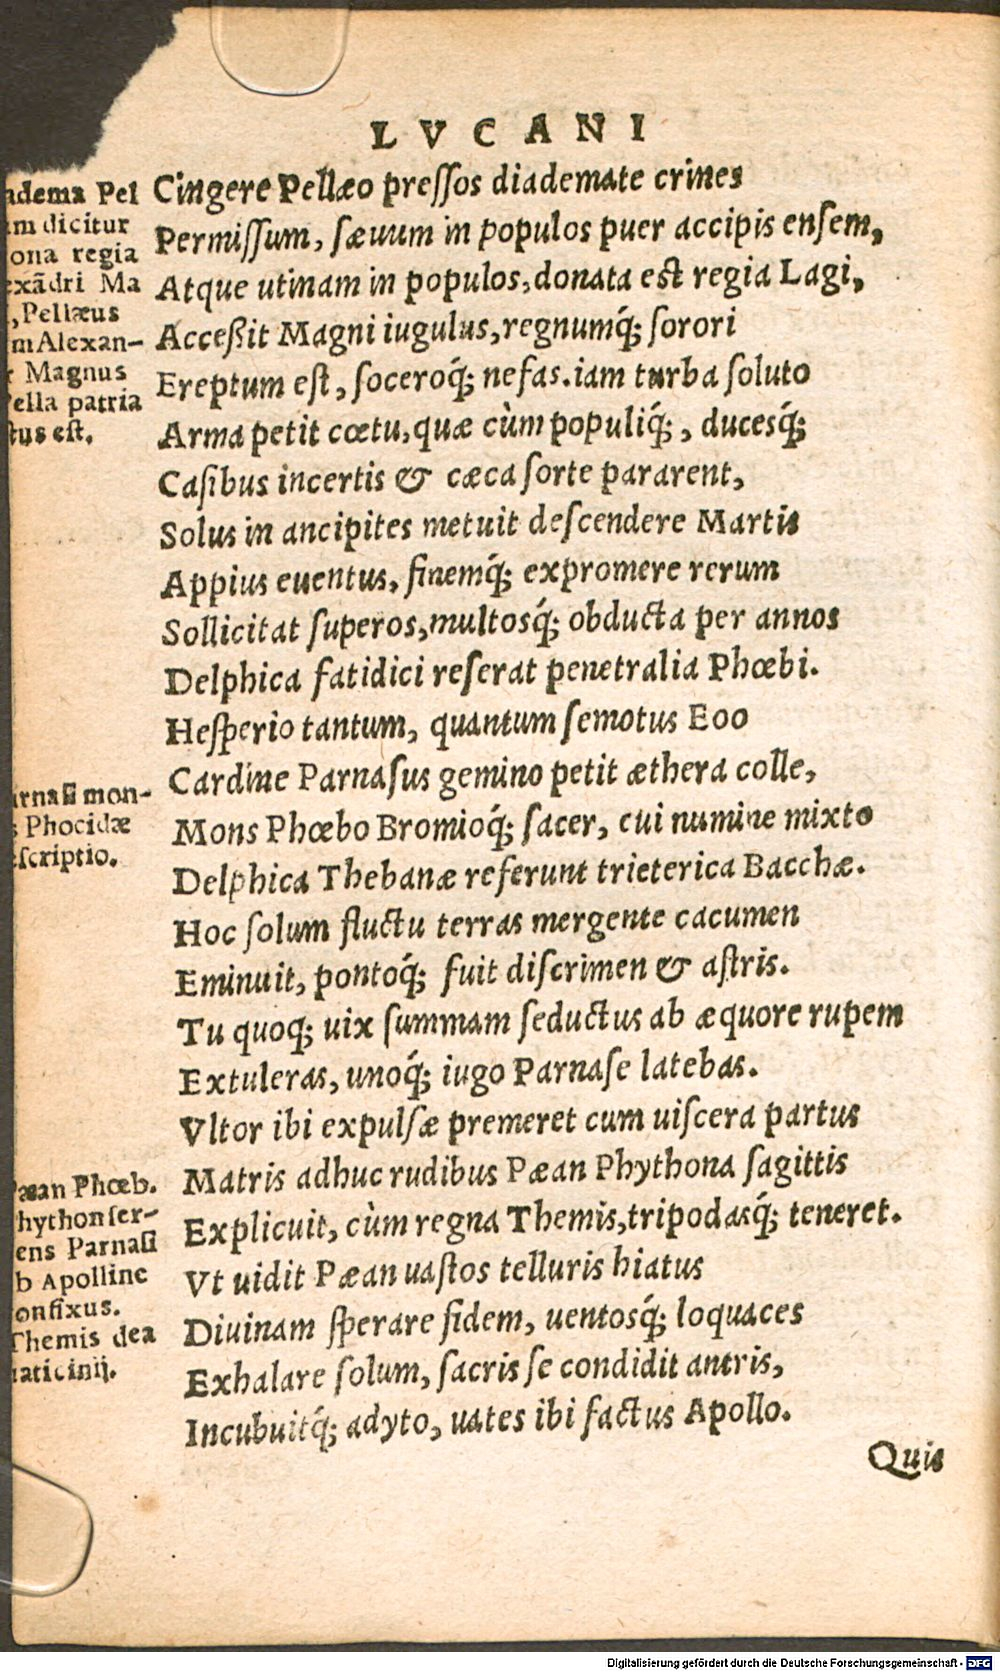 LVCANI
Cingere Pellæo preſſos diademate crines
Permiſſum, ſæuum in populos puer accipis enſem,
Atque utinam in populos, donata est regia Lagi,
Acceßit Magni iugulus, regnumq́; ſorori
Ereptum eſt, ſoceroq́; nefas. iam turba ſoluto
Arma petit cœtu, quæ cùm populiq́;, ducesq́;
Caſibus incertis & cæca ſorte pararent,
Solus in ancipites metuit deſcendere Martis
Appius euentus, finemq́; expromere rerum
Sollicitat ſuperos, multosq́; obducta per annos
Delphica fatidici reſerat penetralia Phœbi.
Heſperio tantum, quantum ſemotus Eoo
Cardine Parnaſus gemino petit æthera colle,
Mons Phœbo Bromioq́; ſacer, cui numine mixto
Delphica Thebanæ referunt trieterica Bacchæ.
Hoc ſolum fluctu terras mergente cacumen
Eminuit, pontoq́; fuit diſcrimen & aſtris.
Tu quoq; uix ſummam ſeductus ab æquore rupem
Extuleras, unoq́; iugo Parnaſe latebas.
Vltor ibi expulſæ premeret cum uiſcera partus
Matris adhuc rudibus Pæan Phythona ſagittis
Explicuit, cùm regna Themis, tripodasq́; teneret.
Vt uidit Pæan uaſtos telluris hiatus
Diuinam ſperare fidem, uentosq́; loquaces
Exhalare ſolum, ſacris ſe condidit antris,
Incubuitq́; adyto, uates ibi factus Apollo.
Quis
adema Pel
m dicitur
ona regia
exãdri Ma
, Pellæus
m Alexan-
Magnus
Pella patria
tus eſt.
arnaſſi mon-
s Phocidæ
eſcriptio.
Pæan Phœb.
hython ſer-
ens Parnaſſi
b Apolline
onfixus.
Themis dea
uaticinij.
Digitalisierung gefördert durch die Deutsche Forschungsgemeinschaft - DFG